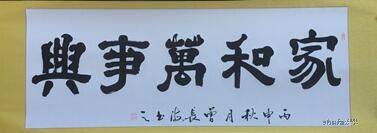 家和萬事興
丙申秋月曾長海書之